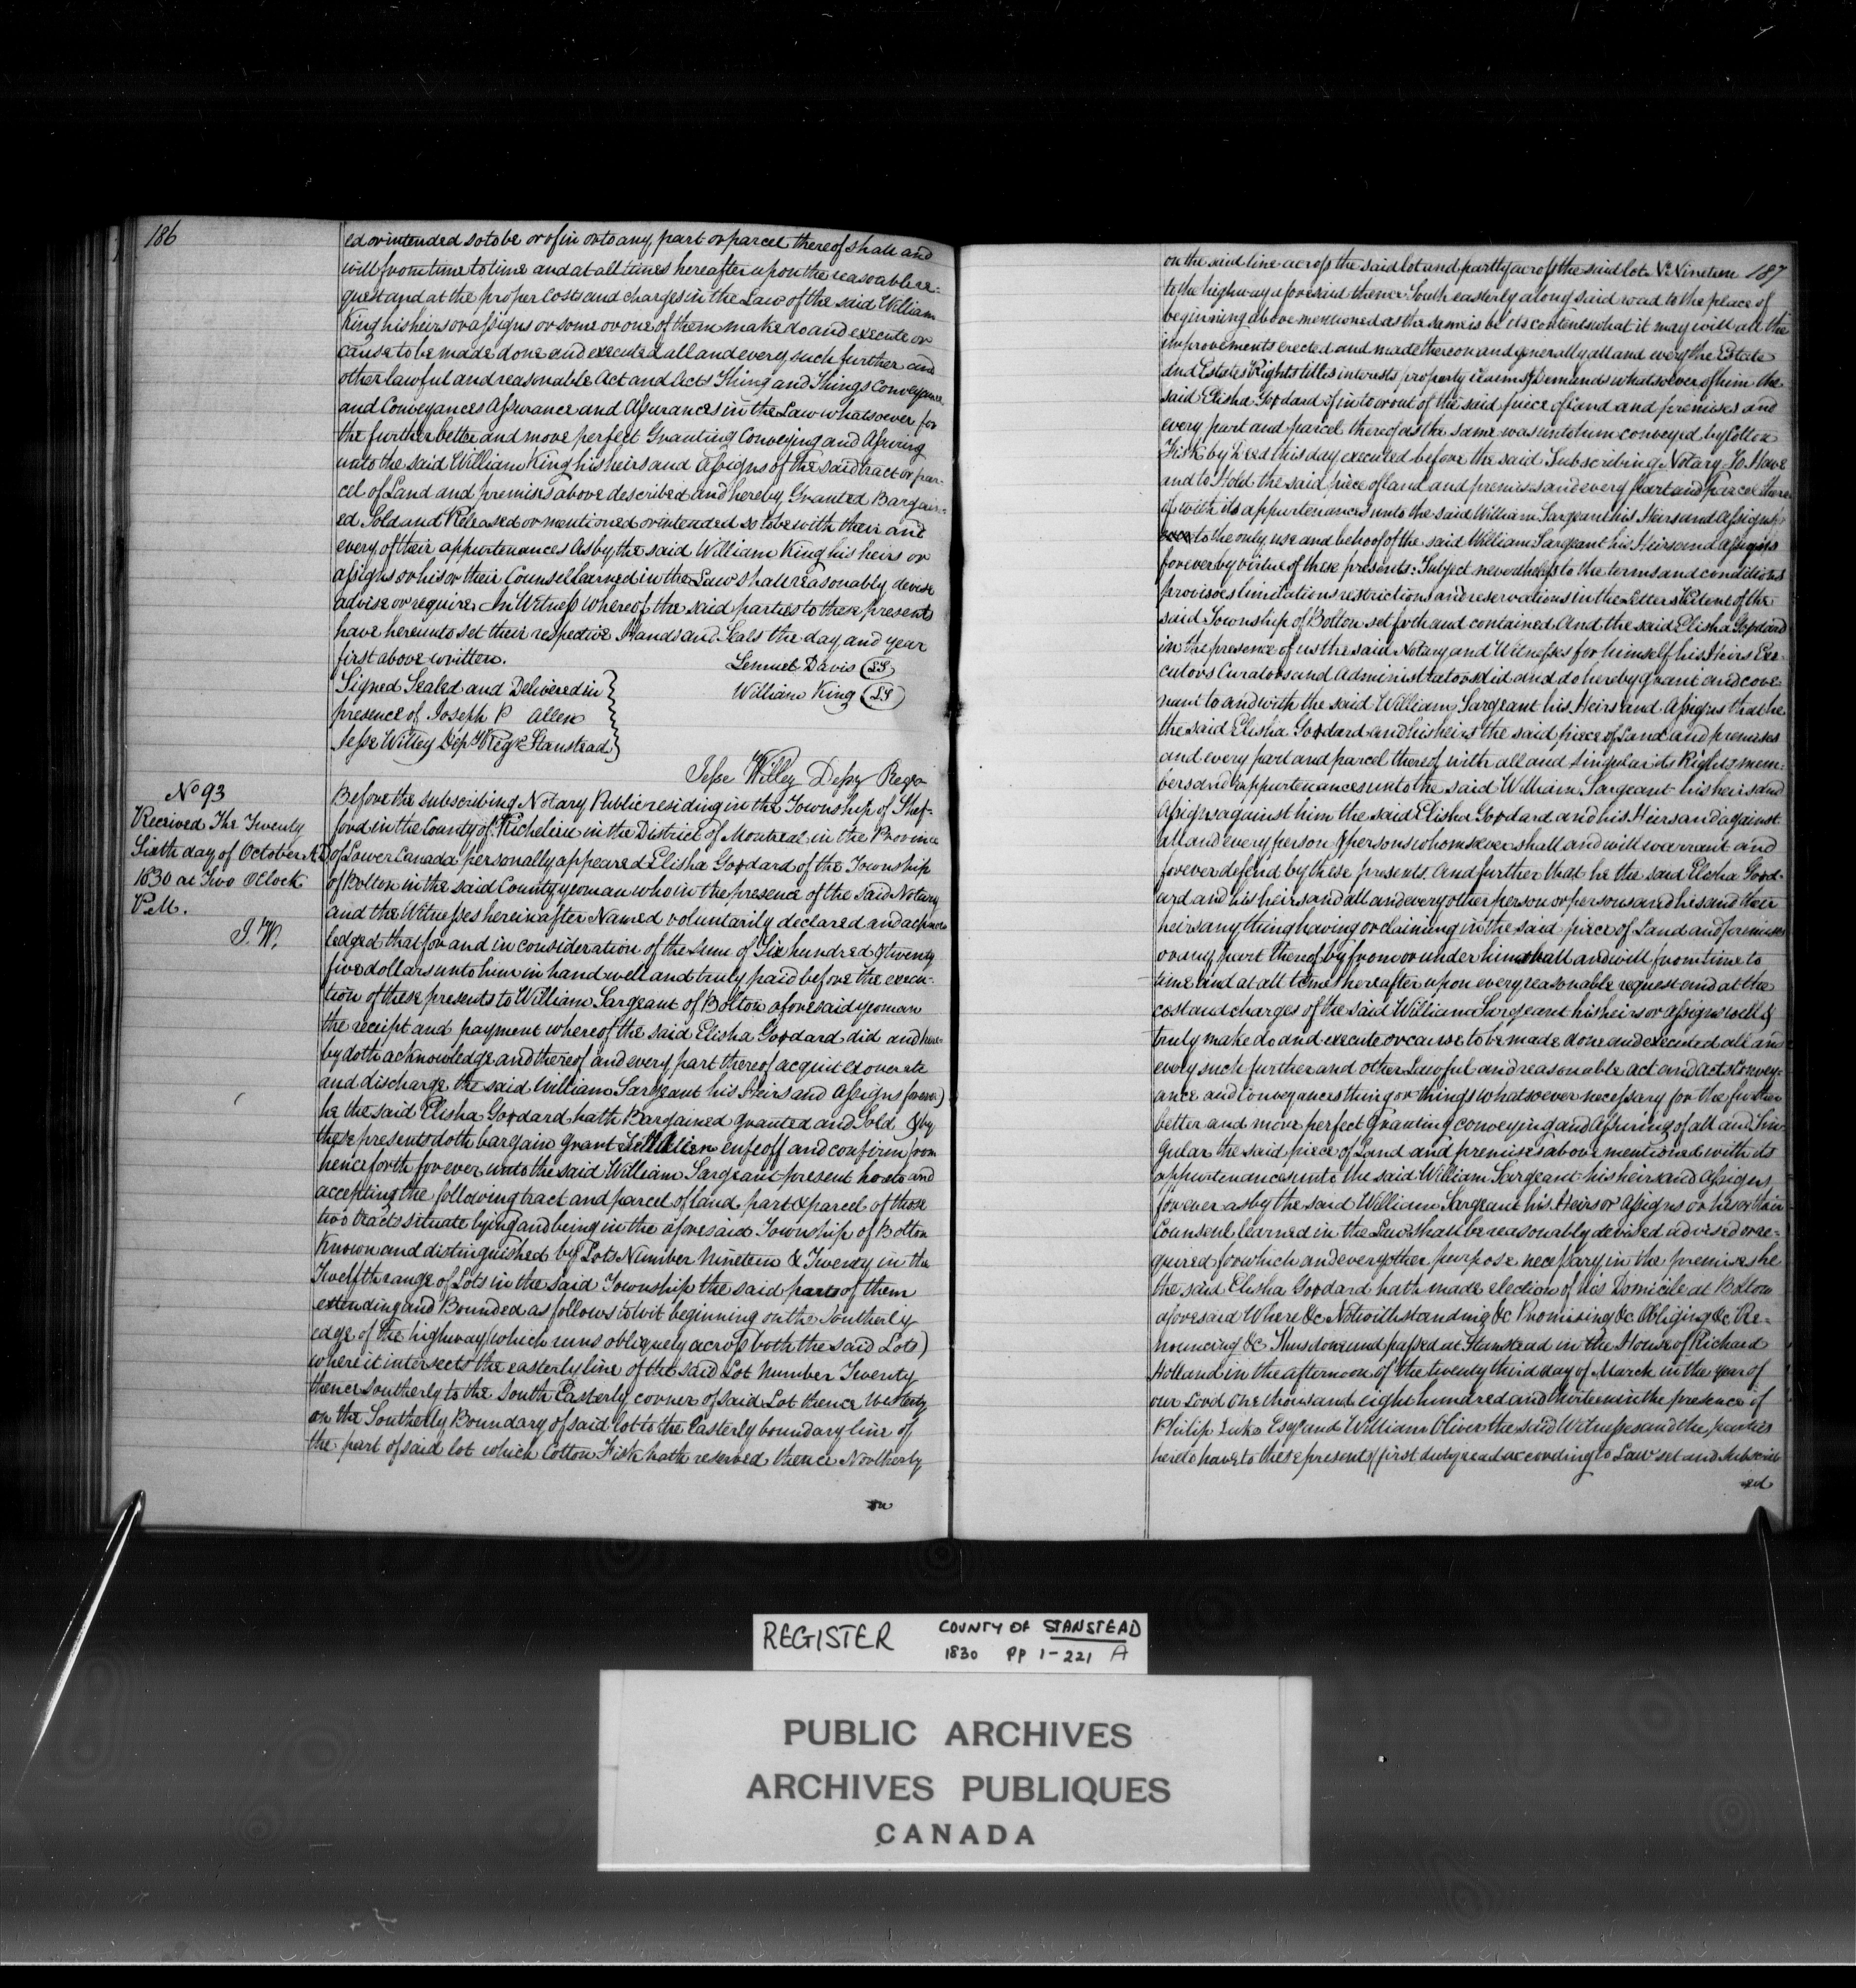 186
ed or intended so to be or of in or to any part or parcel thereof shall and
will from time to time and at all times hereafter upon the reasonable re-
quest and at the proper Costs and charges in the Law of the said William
King his heirs or assigns or some or one of them make do and execute or
cause to be made done and executed all and every such further and
other lawful and reasonable Act and Acts Thing and Things Conveyance
and Conveyances Assurance and Assurances in the Law whatsoever for
the further better and more perfect Granting Conveying and Assuring
unto the said William King his heirs and Assigns of the said tract or par-
cel of Land and premises above described and hereby Granted Bargain-
ed Sold and Released or mentioned or intended so to be with their and
every of their appurtenances As by the said William King his heirs or
assigns or his or their Counsel learned in the Law shall reasonably devise
advise or require. In Witness whereof the said parties to these presents
have hereunto set their respective Hands and Seals the day and year
first above written.
Lemuel Davis (LS)
William King (LS)
Signed Sealed and Delivered in
presence of Joseph P Allen
Jesse Willey Dep Regr Stanstead
Jesse Willey Depy Regr
No 93
Received The Twenty
Sixth day of October AD
1830 at Two OClock
P.M.
J. W.
Before the subscribing Notary Public residing in the Township of Shef-
ford in the County of Richelieu in the District of Montreal in the Province
of Lower Canada personally appeared Elisha Goddard of the Township
of Bolton in the said County yeoman who in the presence of the said Notary
and the Witnesses hereinafter Named voluntarily declared and acknow
ledged that for and in consideration of the sum of Six hundred & twenty
five dollars unto him in hand well and truly paid before the execu-
tion of these presents to William Sargeant of Bolton aforesaid yeoman
the receipt and payment whereof the said Elisha Goddard did and here-
by doth acknowledge and thereof and every part thereof acquit exonerate
and discharge the said William Sargeant his Heirs and Assigns forever)
he the said Elisha Goddard hath Bargained granted and Sold & by
these presents doth bargain grant Sell Alien enfeoff and confirm from
henceforth for ever unto the said William Sargeant present hereto and
accepting the following tract and parcel of land part & parcel of those
two tracts situate lying and being in the aforesaid Township of Bolton
Known and distinguished by Lots Number Nineteen & Twenty in the
Twelfth range of Lots in the said Township the said parts of them
extending and Bounded as follows to wit beginning on the Southerly
edge of the highway (which runs obliquely across both the said Lots)
where it intersects the easterly line of the said Lot Number Twenty
thence Southerly to the South Easterly corner of said Lot thence Westerly
on the Southerly Boundary of said lot to the Easterly boundary line of
the part of said lot which Cotton Fisk hath reserved thence Northerly
on
187
on the said line across the said lot and partly across the said lot No Nineteen
to the highway aforesaid thence South easterly along said road to the place of
beginning above mentioned as the same is be its contents what it may will all the
improvements erected and made thereon and generally all and every the Estate
and Estates Rights titles interests property claims & Demands whatsoever of him the
said Elisha Goddard of in to or out of the said piece of Land and premises and
every part and parcel thereof as the same was unto him conveyed by Cotton
Fisk by Deed this day executed before the said Subscribing Notary To Have
and to Hold the said piece of land and premises and every part and parcel there
of with its appurtenances unto the said William Sargeant his Heirs and Assigns
to the only use and behoof of the said William Sargeant his Heirs and Assigns
forever by virtue of these presents: Subject nevertheless to the terms and conditions
provisoes limitations restrictions and reservations in the Letters Patent of the
said Township of Bolton set forth and contained. And the said Elisha Goddard
in the presence of us the said Notary and Witnesses for himself his Heirs Exe-
cutors Curators and Administrators did and do hereby grant and cove-
nant to and with the said William Sargeant his Heirs and Assigns that he
the said Elisha Goddard and his heirs the said piece of Land and premises
and every part and parcel thereof with all and singular its Rights mem-
bers and appurtenances unto the said William Sargeant his heirs and
Assigns against him the said Elisha Goddard and his Heirs and against
all and every person & persons whomsoever shall and will warrant and
forever defend by these presents. And further that he the said Elisha Godd-
ard and his heirs and all and every other person or persons and his and their
heirs any thing having or claiming in the said piece of Land and premises
or any part thereof by from or under him shall and will from time to
time and at all times hereafter upon every reasonable request and at the
cost and charges of the said William Sargeant his heirs or Assigns well &
truly make do and execute or cause to be made done and executed all and
every such further and other Lawful and reasonable act and acts Convey-
ance and Conveyances thing or things whatsoever necessary for the further
better and more perfect granting conveying and Assuring of all and Sin
gular the said piece of Land and premises above mentioned with its
appurtenances unto the said William Sargeant his heirs and Assigns
for ever as by the said William Sargeant his Heirs or Assigns or his or their
Counsel learned in the Law shall be reasonably devised advised or re-
quired for which and every other purpose necessary in the premises he
the said Elisha Goddard hath made election of his Domicile at Bolton
aforesaid Where &c Notwithstanding &c Promising &c Obliging &c Re-
nouncing &c Thus done and passed at Stanstead in the House of Richard
Holland in the afternoon of the twenty third day of March in the year of
our Lord One thousand eight hundred and thirteen in the presence of
Philip Luke Esqr and William Oliver the said Witnesses and the parties
hereto have to these presents (first duly read according to Law set and subscrib
ed
REGISTER COUNTY OF STANSTEAD
1830 PP 1-221 A
PUBLIC ARCHIVES
ARCHIVES PUBLIQUES
CANADA